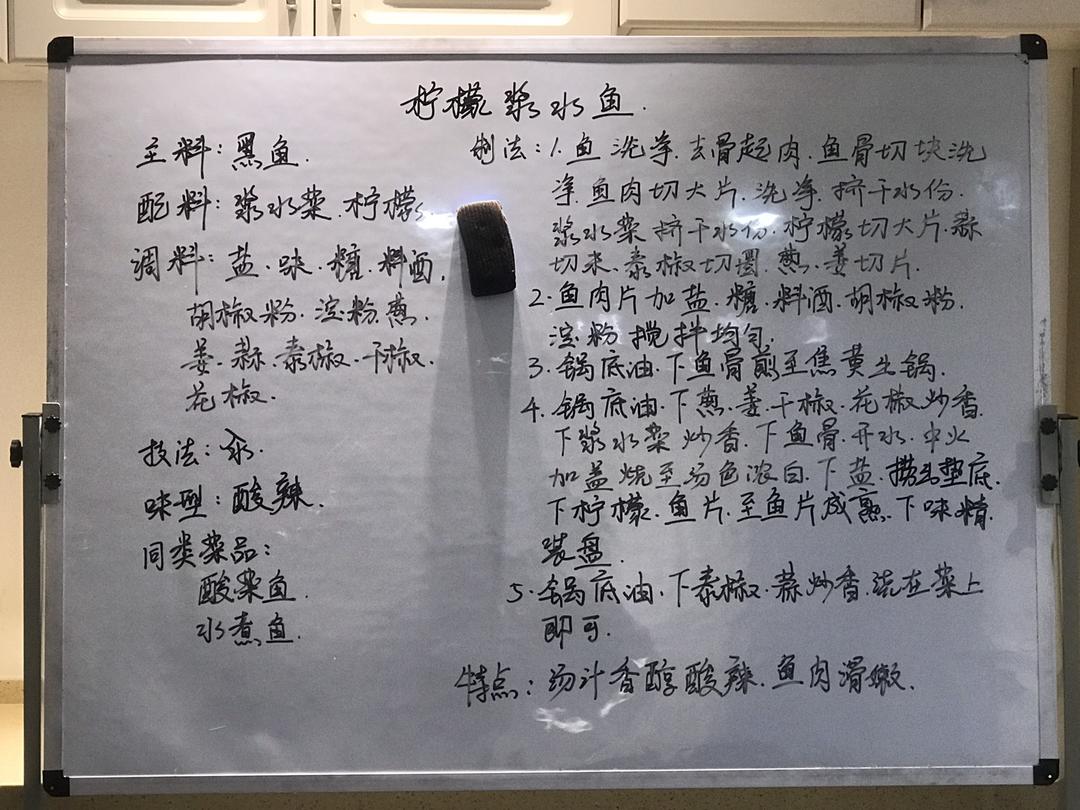 柠檬浆水鱼.
主料:黑鱼.
配料:浆水菜.柠檬.
调料:盐.味.糖.料酒.
胡椒粉.淀粉.葱.
姜.蒜.泰椒.干椒.
花椒.
技法:汆.
味型:酸辣.
同类菜品:
酸菜鱼.
水煮鱼.
制法:1.鱼洗净.去骨起肉.鱼骨切块洗
净.鱼肉切大片.洗净.挤干水份.
浆水菜挤干水份.柠檬切大片.蒜
切末.泰椒切圈.葱.姜切片.
2.鱼肉片加盐.糖.料酒.胡椒粉.
淀粉搅拌均匀.
3.锅底油.下鱼骨煎至焦黄出锅.
4.锅底油.下葱.姜.干椒.花椒炒香.
下浆水菜炒香.下鱼骨.开水.中火
加盖烧至汤色浓白.下盐.捞出垫底.
下柠檬.鱼片.至鱼片成熟.下味精.
装盘.
5.锅底油.下泰椒.蒜炒香.浇在菜上
即可.
特点:汤汁香醇酸辣.鱼肉滑嫩.